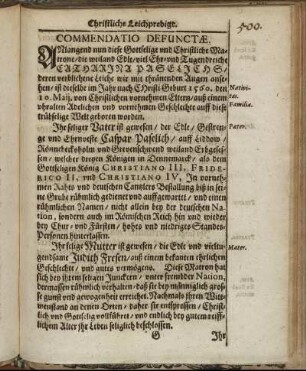 Christliche Leichpredigt.
500.
COMMENDATIO DEFUNCTÆ.
ANlangend nun diese Gottselige und Christliche Ma-
trone, die weiland Edle, viel Ehr, und Tugendreiche
CATHARINA PASELICHS,
deren verblichene Leiche wir mit thränenden Augen anse-
hen, ist dieselbe im Jahr nach Christi Geburt 1560. den
10. Maij, von Christlichen vornehmen Eltern, auß einem
uhralten Adelichen und vornehmen Geschlechte auff diese
trübselige Welt geboren worden.
Nativi-
tas.
Familia.
Ihr seliger Vater ist gewesen, der Edle, Gestren-
ge und Ehrnveste Caspar Paselich, auff Liddow,
Pater.
und Greenschwerdt weiland Erbgeses-
sen, welcher dreyen Königen in Dennemarck, als dem
Gottseligen König CHRISTIANO III. FRIDE-
RICO II. und CHRISTIANO IV. In vorneh-
men Rahts und deutschen Cantzlers Bestallung biß in sei-
ne Grube rühmlich gedienet und auffgewartet, und einen
rühmlichen Namen, nicht allein bey der deutschen Na-
tion, sondern auch im Römischen Reich hin und wieder
bey Chur- und Fürsten, hohes und niedriges Standes-
Personen hinterlassen.
Ihr selige Mutter ist gewesen, die Edle und vieltu-
gendsame Judith Fresen, auß einem bekanten ehrlichen
Mater.
Geschlechte, und gutes vermögens. Diese Matron hat
sich bey ihrem seligen Junckern, unter frembder Nation,
dermassen rühmlich verhalten, daß sie bey männiglich gros-
se gunst und gewogenheit erreichet. Nachmals ihren Wit-
wenstand an denen Orten, daher sie entsprossen, Christ-
lich und Gottselig vollführet, und endlich bey gutem
Alter ihr Leben seliglich beschlossen.
G
Ihr